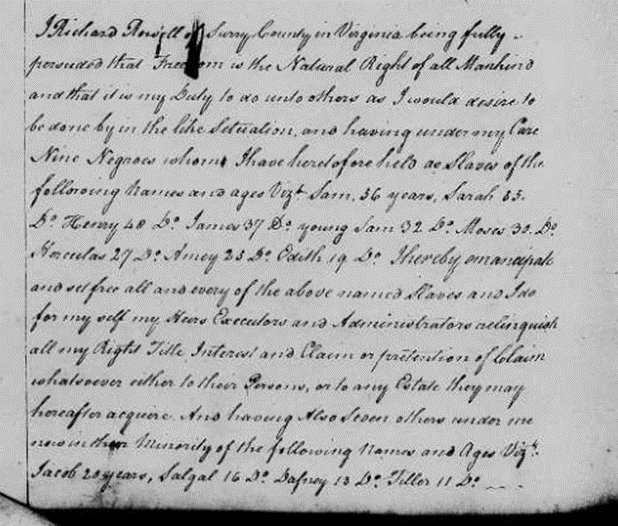 I Richard Rowell of Surry County in Virginia being fully
persuded that Freedom is the Natural Right of all Mankind
and that it is my Duty to do unto others as I would desire to
be done by in the like Setuation, and having under my Care
Nine Negroes whom I have heretofore held as Slaves of the
following Names and ages Vizt. Sam, 56 years, Sarah 55.
Do. Henry 48 Do. James 37 Do. young Sam 32 Do. Moses 30. Do.
Herculas 27 Do. Amey 25 Do. Edith 19 Do. I hereby emancipate
and set free all and every of the above named Slaves and I do
for my self my Heirs Executors and Administrators relinquish
all my Right Title Interest and Claim or pretention of Claim
whatsoever either to their Persons, or to any Estate they may
hereafter acquire. And having Also Seven others under me
now in their Minority of the following Names and Ages Vizt.
Jacob 20 years, Salgal 16 Do. Dafney 13 Do. Tiller 11 Do.